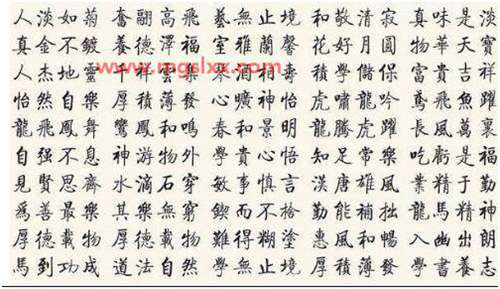 人淡如菊 奮翮高飛 藝無止境 和敬清寂 真味是淡
真金不鍍 養德澤福 室雅蘭馨 花好月圓 物華天寶
www.mgslxx.com
人杰地靈 雲集 酒相壽 學儲保 富貴吉祥
怡然自樂 厚積薄發 心曠神怡 虎嘯龍吟 鳶飛魚躍
龍飛鳳舞 鸞鳳和鳴 春和景明 龍騰虎躍 長風萬裏
自强不息 神游物外 學貴心悟 知足常樂 吃虧是福
見賢思齊 水滴石穿 敏事慎言 漢唐雄風 業精于勤
爲善最樂 其樂無窮 鍥而不捨 勤能補拙 龍馬精神
厚德載物 厚德載物 難得糊塗 惠風和暢 入幽出朗
馬到功成 道法自然 學無止境 厚積薄發 學書養志